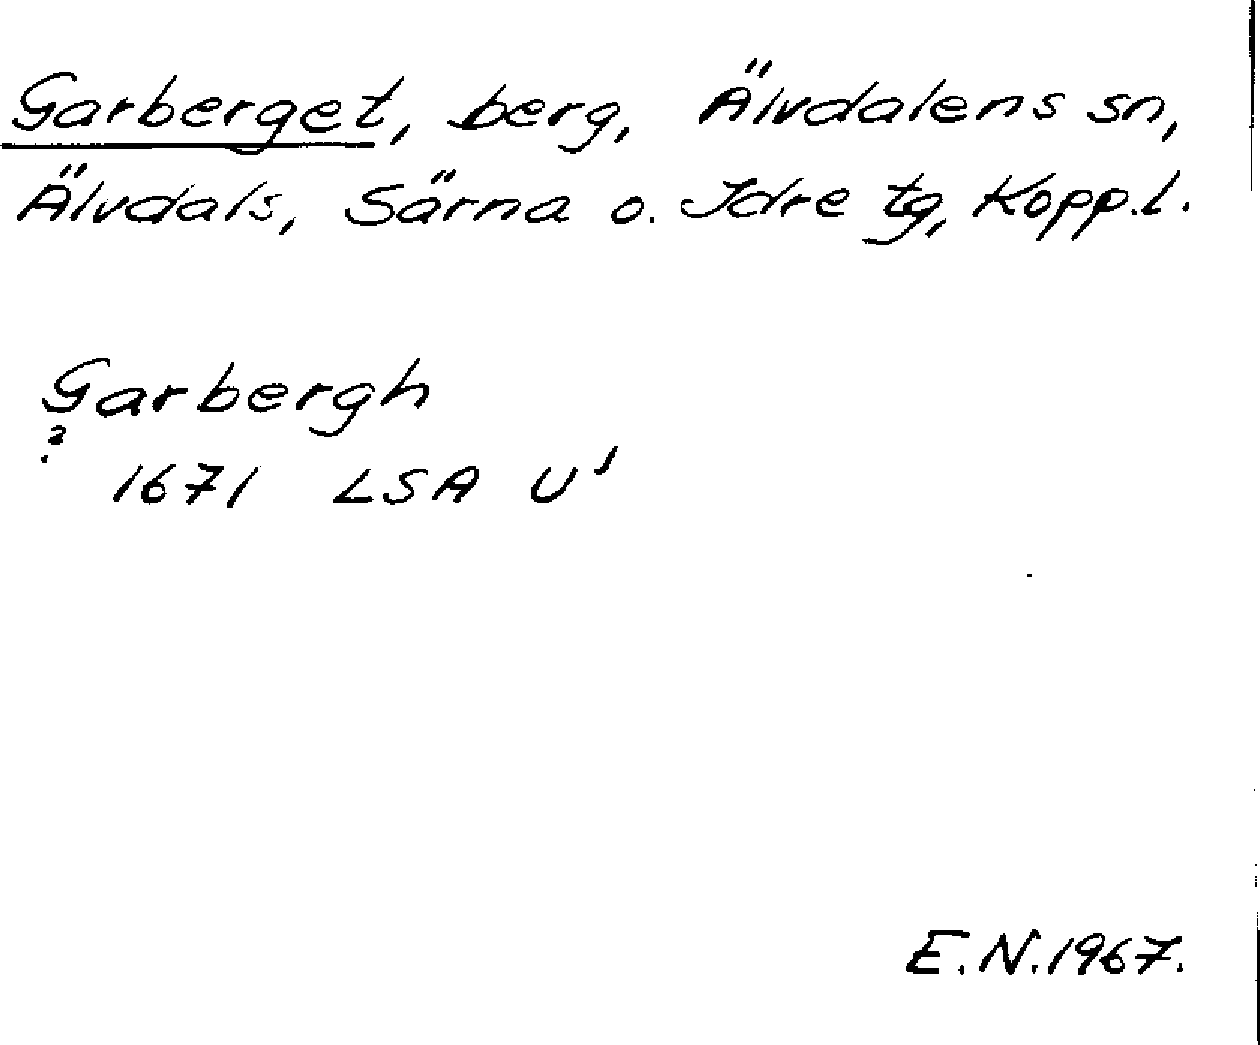 Garberget, berg, Älvdalens sn,
Älvdals, Särna o. Idre tg, Kopp.l.
Garbergh
?
1671 LSA U¹
E.N.1967.